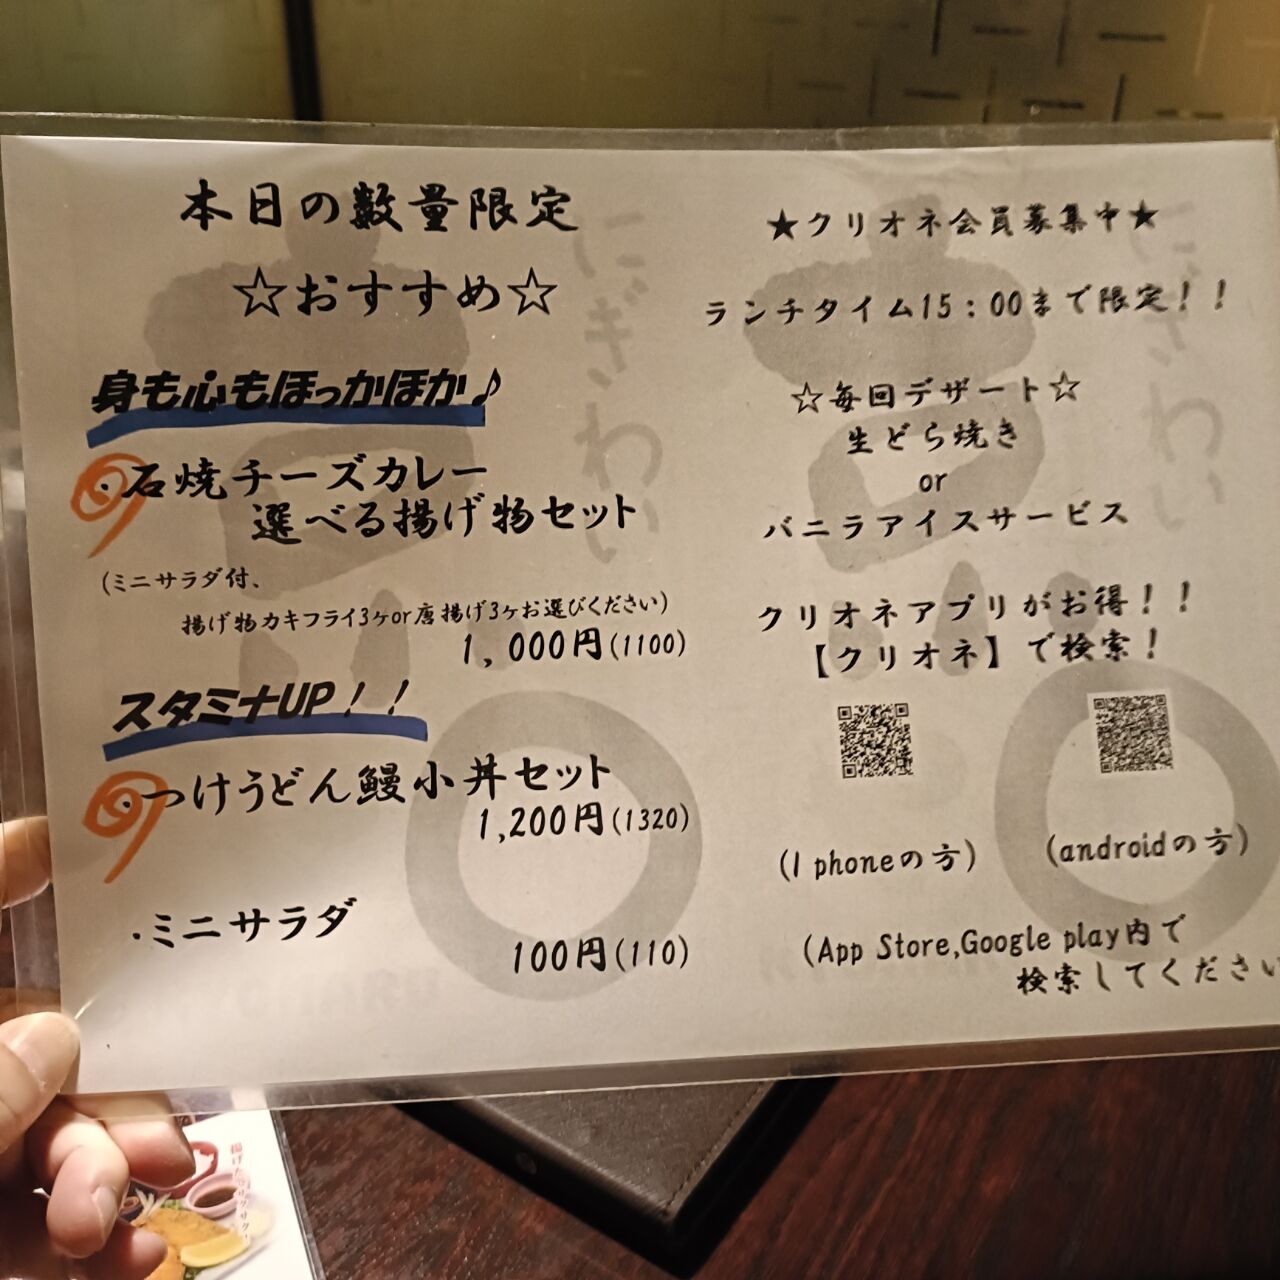 本日の数量限定
☆おすすめ☆
身も心もほっかほか♪
・石焼チーズカレー
選べる揚げ物セット
(ミニサラダ付、
揚げ物カキフライ3ヶor唐揚げ3ヶお選びください)
1,000円(1100)
スタミナUP！！
・つけうどん鰻小丼セット
1,200円(1320)
・ミニサラダ
100円(110)
★クリオネ会員募集中★
ランチタイム15：00まで限定！！
☆毎回デザート☆
生どら焼き
or
バニラアイスサービス
クリオネアプリがお得！！
【クリオネ】で検索！
(I phoneの方)
(androidの方)
(App Store,Google play内で
検索してください
にぎわい
にぎわい